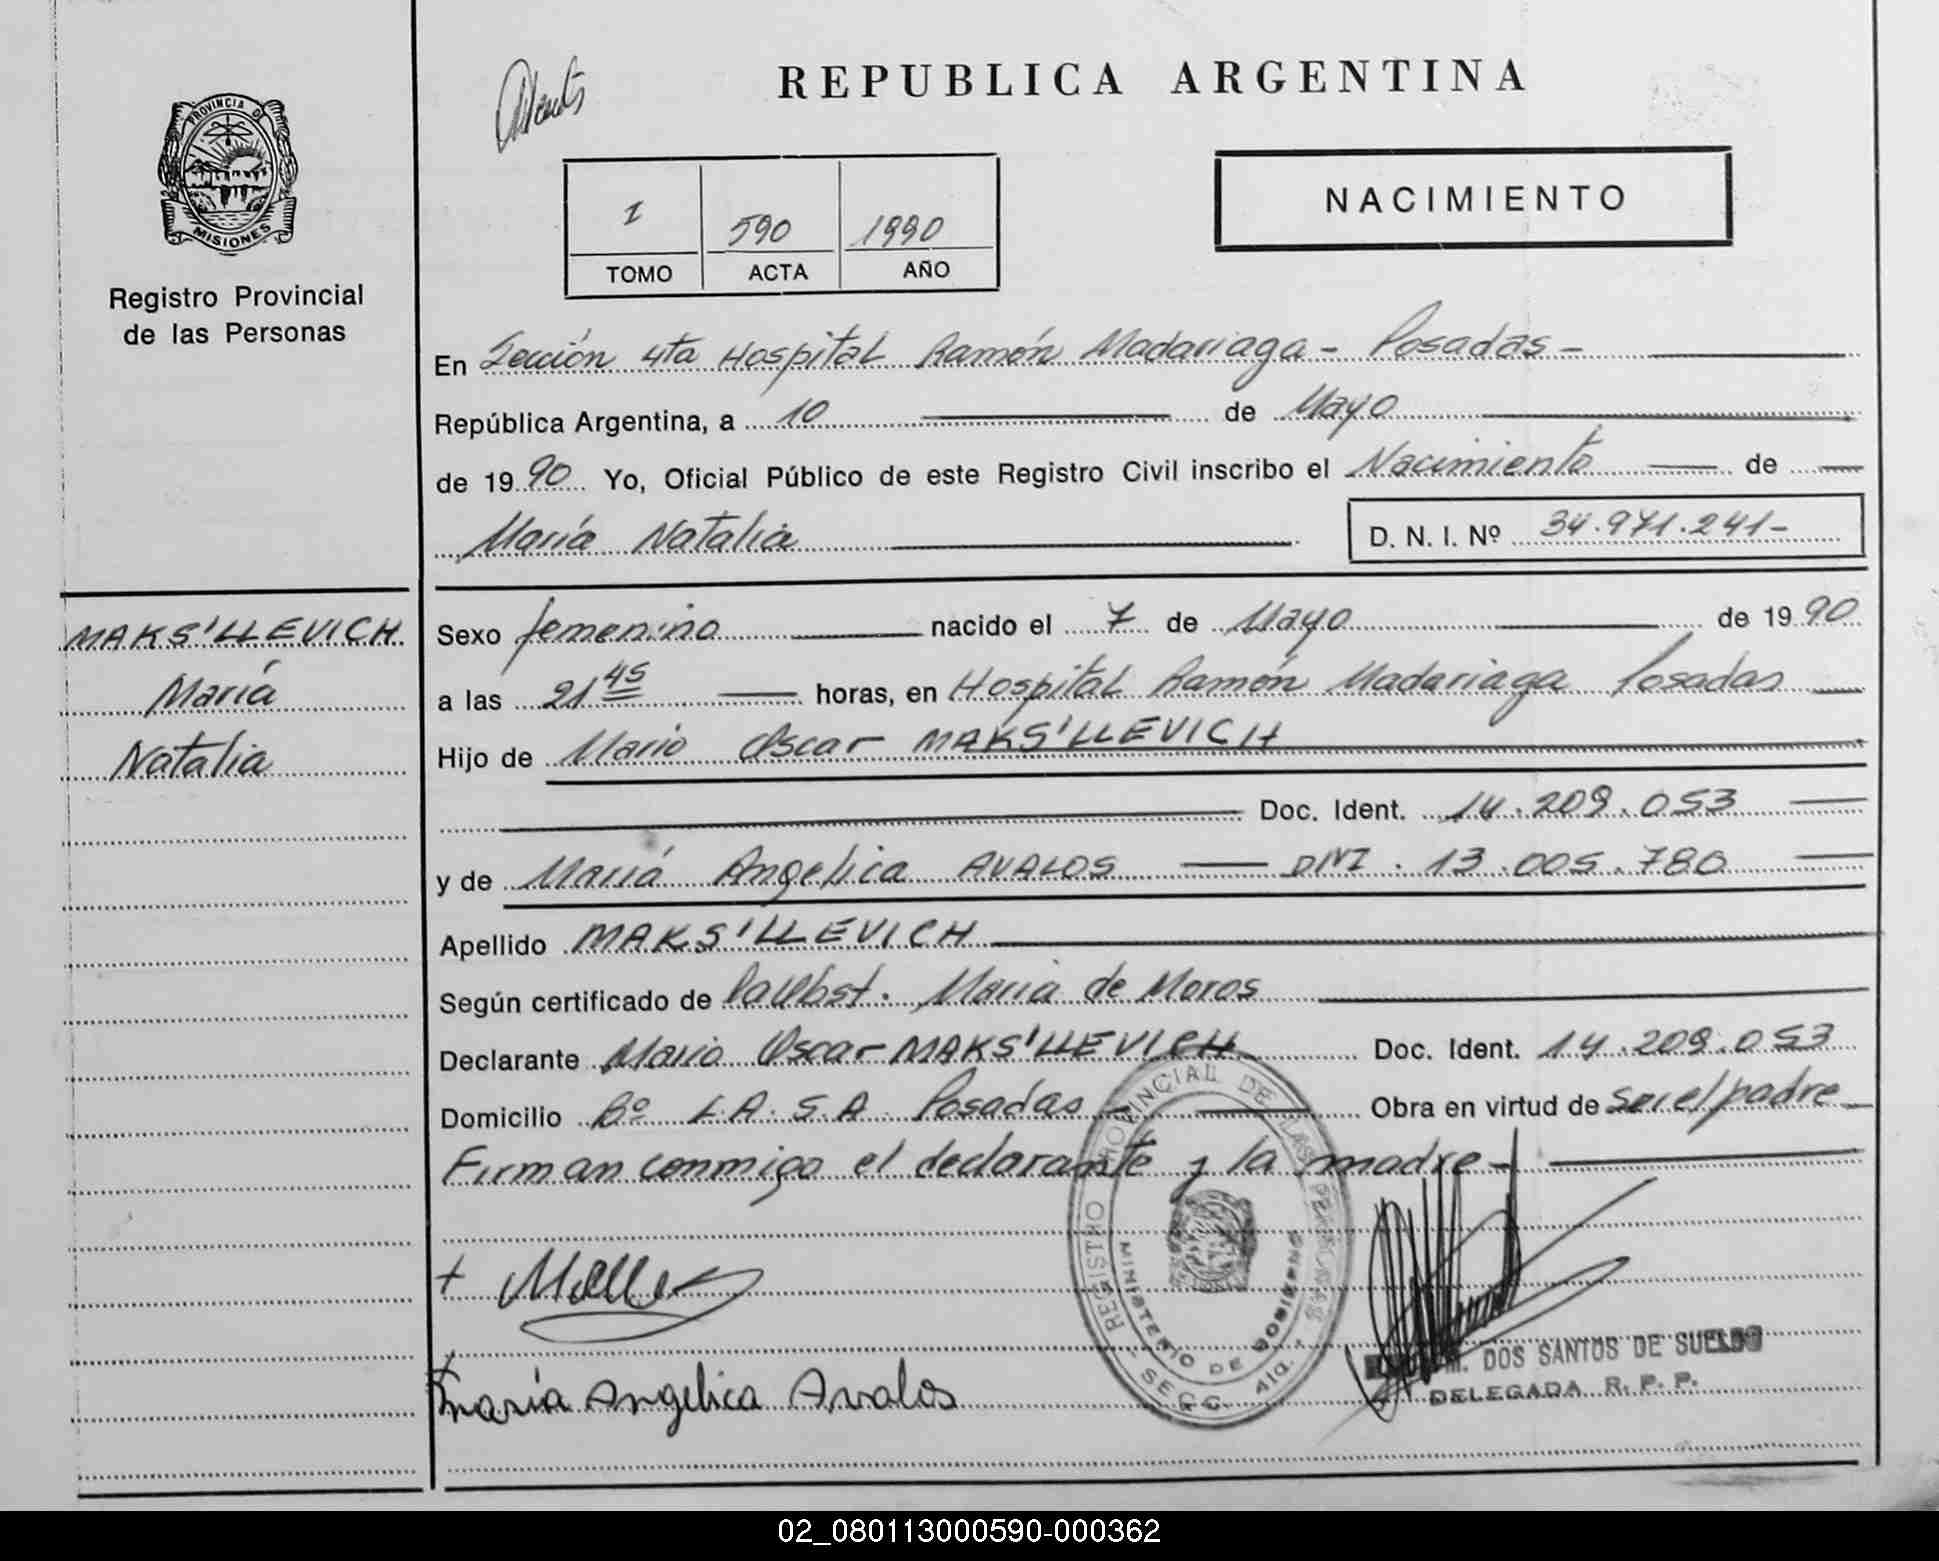 REPUBLICA ARGENTINA
PROVINCIA DE
MISIONES
Registro Provincial
de las Personas
NACIMIENTO
I 590 1990
TOMO ACTA AÑO
En Sección 4ta Hospital Ramón Madariaga - Posadas -
República Argentina, a 10 de Mayo
de 1990 Yo, Oficial Público de este Registro Civil inscribo el Nacimiento de
María Natalia D. N. I. Nº 34.971.241-
MAKS'LLEVICH
María
Natalia
Sexo femenino nacido el 7 de Mayo de 1990
a las 21 45 horas, en Hospital Ramón Madariaga Posadas
Hijo de Mario Oscar MAKS'LLEVICH
Doc. Ident. 14.209.053
y de María Angelica AVALOS DNI. 13.005.780
Apellido MAKS'LLEVICH
Según certificado de María de Moros
Declarante Mario Oscar MAKS'LLEVICH Doc. Ident. 14.209.053
Domicilio Bº I.A.S.A. Posadas - Obra en virtud de ser el padre
Firman conmigo el declarante y la madre -
REGISTRO PROVINCIAL DE LAS PERSONAS
MINISTERIO DE GOBIERNO
SECC. 4ta.
María Angelica Avalos
M. DOS SANTOS DE SUELDO
DELEGADA R. P. P.
02_080113000590-000362